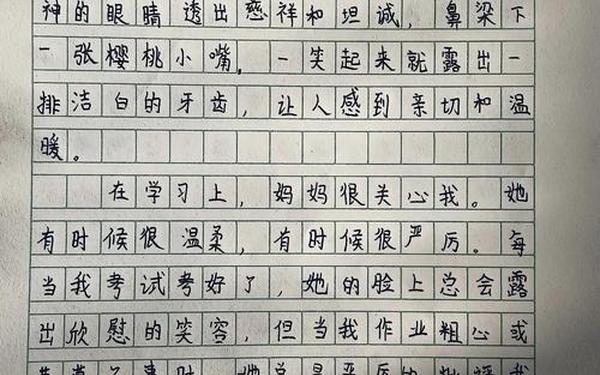 神的眼睛透出慈祥和坦诚，鼻梁下
一张樱桃小嘴，一笑起来就露出一
排洁白的牙齿，让人感到亲切和温
暖。
在学习上，妈妈很关心我。她
有时候很温柔，有时候很严厉。每
当我考试考好了，她的脸上总会露
出欣慰的笑容，但当我作业粗心或
事时，她总是严厉的批评我